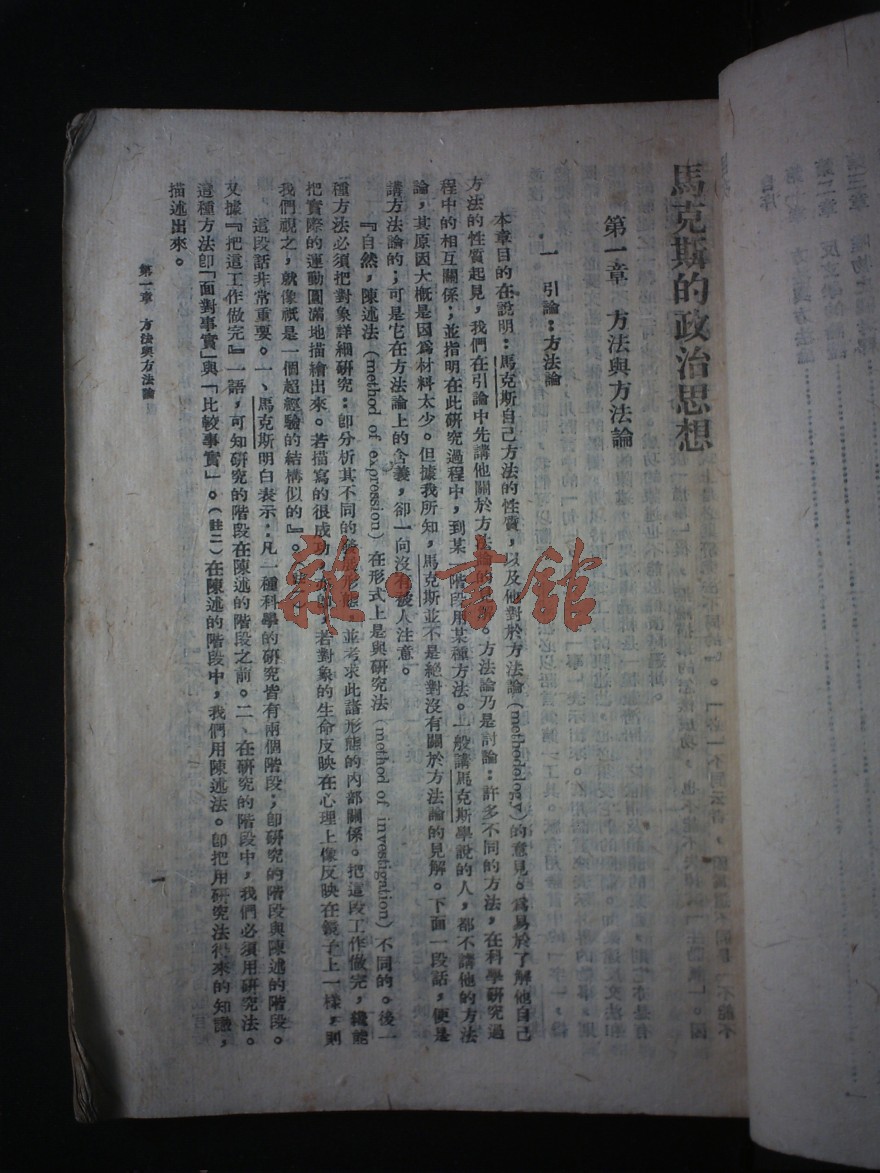 馬克斯的政治思想
第一章 方法與方法論
一 引論：方法論
本章目的在說明：馬克斯自己方法的性質，以及他對於方法論(methodology)的意見。爲易於了解他自己
方法的性質起見，我們在引論中先講他關於方法論的見解。方法論乃是討論：許多不同的方法，在科學研究過
程中的相互關係；並指明在此研究過程中，到某一階段用某種方法。一般講馬克斯學說的人，都不講他的方法
論，其原因大概是因爲材料太少。但據我所知，馬克斯並不是絕對沒有關於方法論的見解。下面一段話，便是
講方法論的；可是它在方法論上的含義，卻一向沒有被人注意。
『自然，陳述法(method of expression)在形式上是與研究法(method of investigation)不同的。後一
種方法必須把對象詳細研究：卽分析其不同的發展形態，並考求此諸形態的內部關係。把這段工作做完，纔能
把實際的運動圓滿地描繪出來。若描寫的很成功，若對象的生命反映在心理上像反映在鏡子上一樣，則
我們視之，就像祇是一個超經驗的結構似的』。
這段話非常重要。一、馬克斯明白表示：凡一種科學的研究皆有兩個階段；卽研究的階段與陳述的階段。
又據『把這工作做完』一語，可知研究的階段在陳述的階段之前。二、在研究的階段中，我們必須用研究法。
這種方法卽「面對事實」與「比較事實」。(註二)在陳述的階段中，我們用陳述法。卽把用研究法得來的知識，
描述出來。
第一章 方法與方法論
一
雜·書館
自序